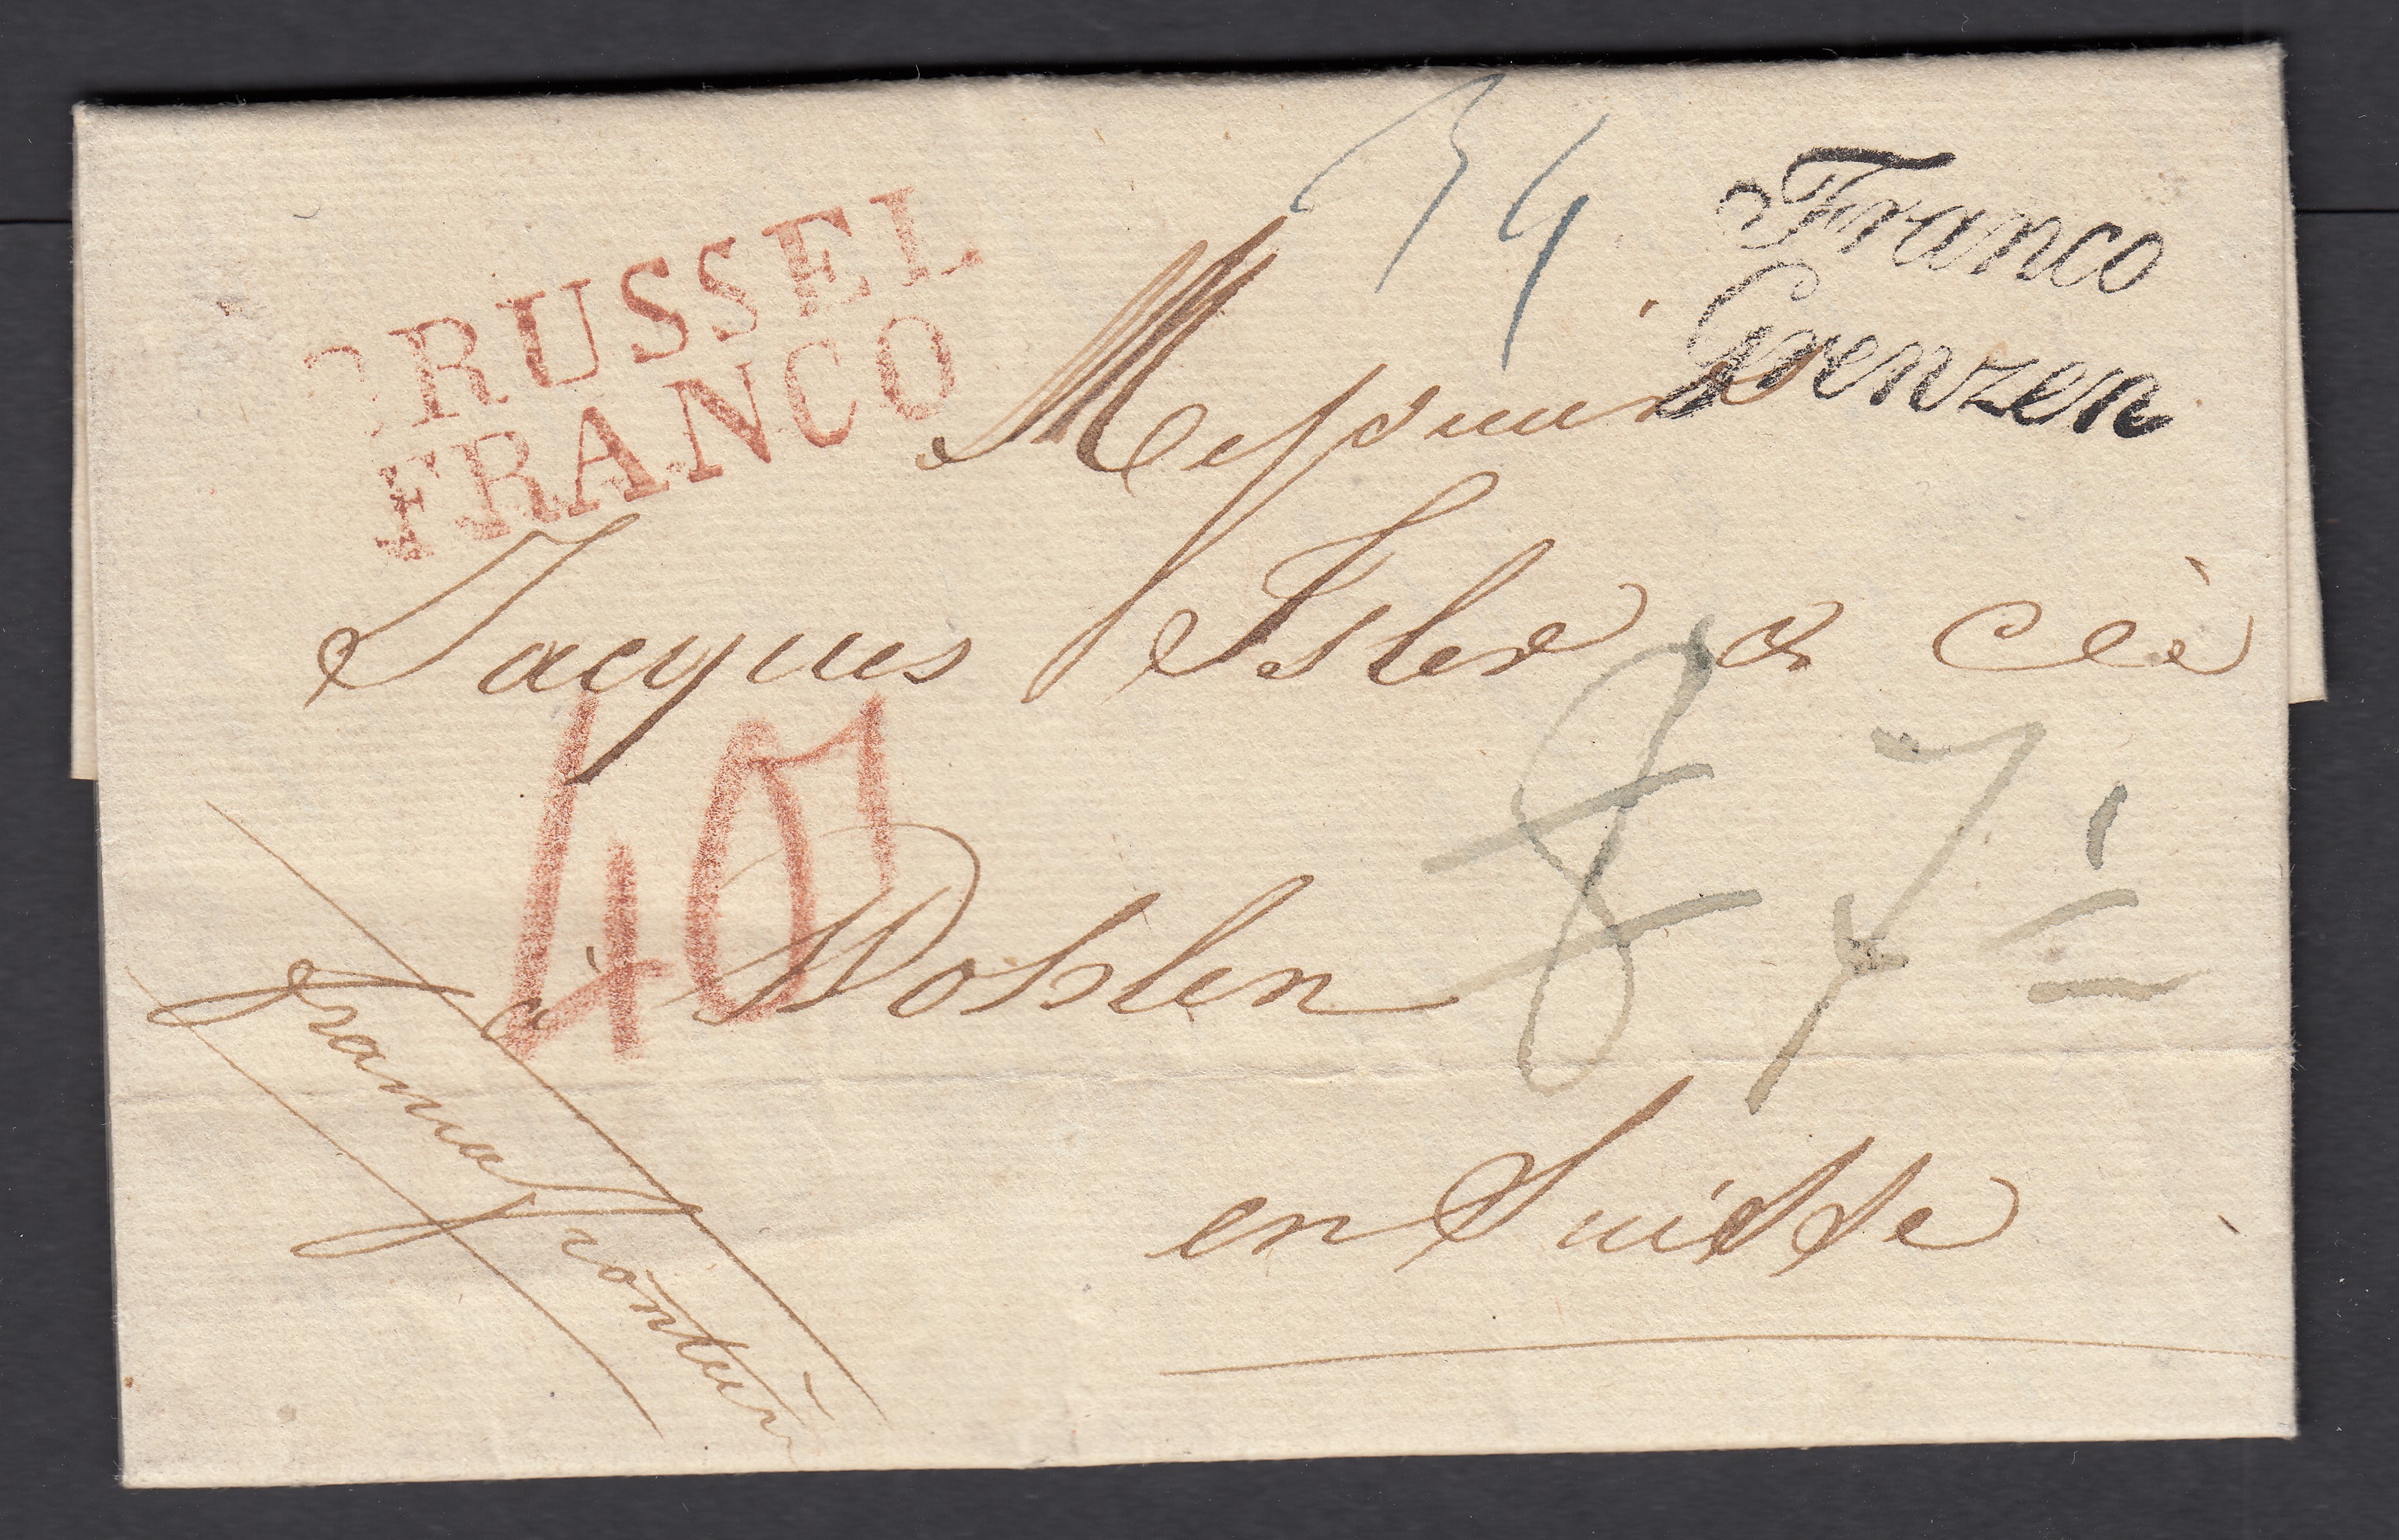 BRUSSEL
FRANCO
34
Franco
Grenzen
Messieurs
Jacques Isler & Cie
40
à Wohlen
en Suisse
franco frontier